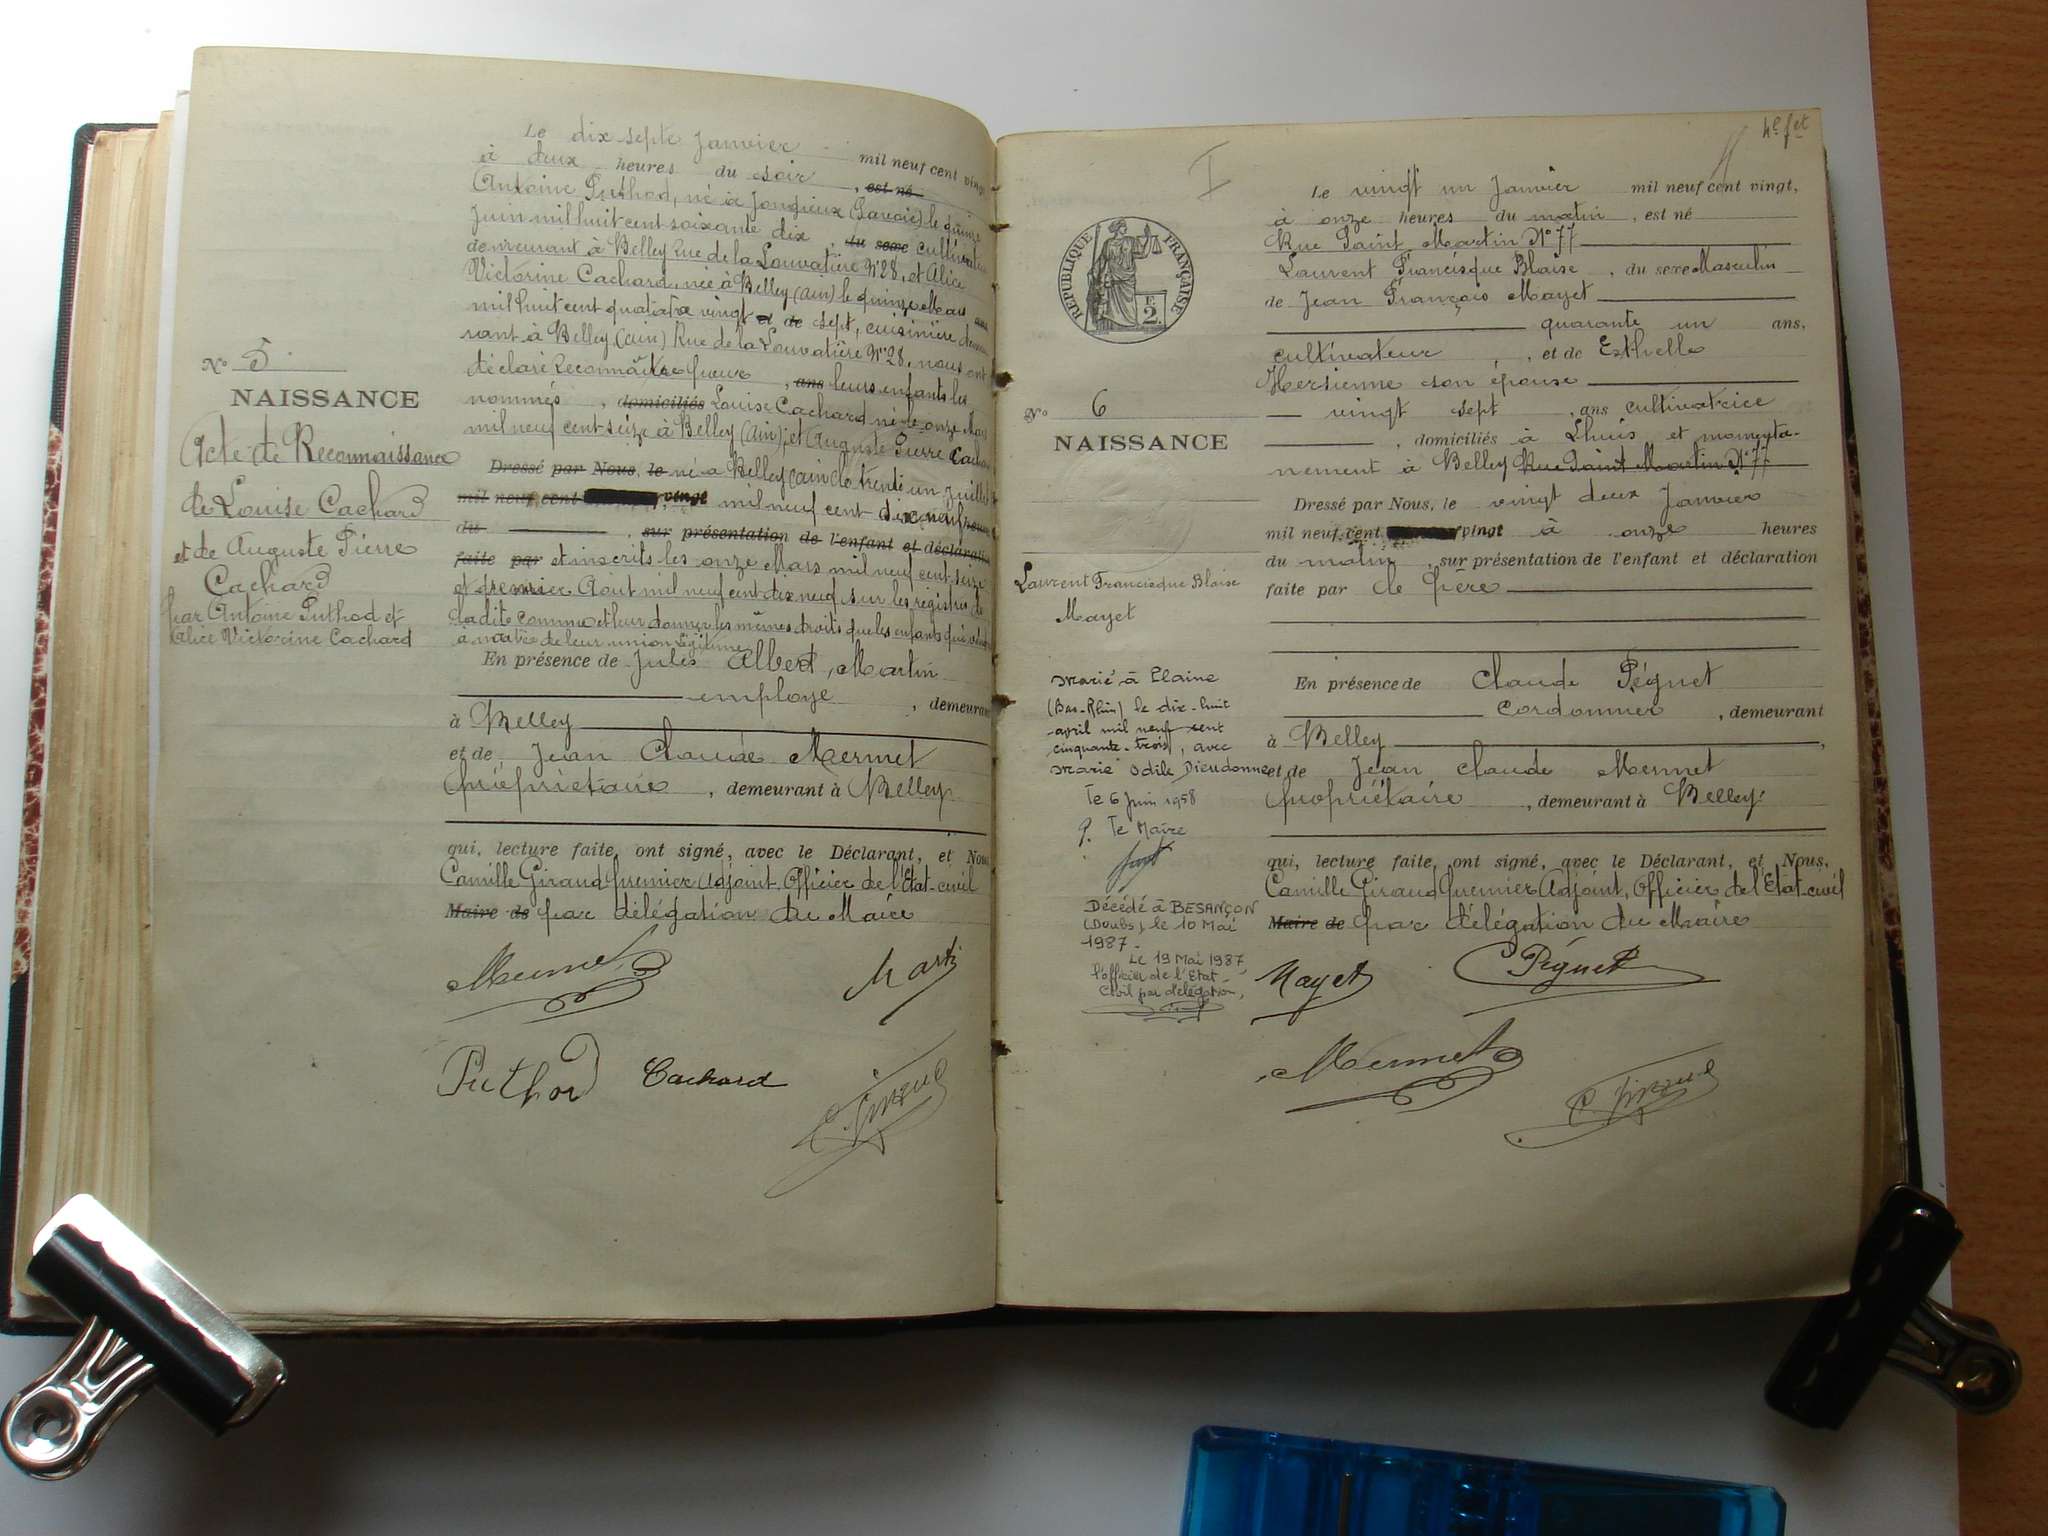 N° 5
NAISSANCE
Acte de Reconnaissance
de Louise Cachard
et de Auguste Pierre
Cachard
par Antoine Puthod et
Alice Victorine Cachard
Le dix sept Janvier mil neuf cent vingt
à deux heures du soir, est né
Antoine Puthod, né à Jongieux (Savoie) le quinze
Juin mil huit cent soixante dix, du sexe cultivateur
demeurant à Belley Rue de la Louvatière N° 28, et Alice
Victorine Cachard, née à Belley (ain) le quinze Mars
mil huit cent quatre vingt et de sept, cuisinière demeu
rant à Belley (ain) Rue de la Louvatière N° 28, nous ont
déclaré Reconnaître pour, ans leurs enfants les
nommés, domiciliés Louise Cachard né le onze Mars
mil neuf cent seize à Belley (Ain), et Auguste Pierre Cachard
Dressé par Nous, le né à Belley (ain) le trente un Juillet
mil neuf cent vingt mil neuf cent dix neuf
du, sur présentation de l'enfant et déclaration
faite par et inscrits les onze Mars mil neuf cent seize
et premier Aout mil neuf cent dix neuf sur les registres de
la dite commune et leur donner les mêmes droits que les enfants qui
à naître de leur union légitime
En présence de Jules Albert, Martin
employe, demeurant
à Belley
et de Jean Claude Mermet
propriétaire, demeurant à Belley
qui, lecture faite, ont signé, avec le Déclarant, et Nous
Camille Giraud premier Adjoint, Officier de l'Etat-civil
Maire de par délégation du Maire
Mermet
Martin
Puthod Cachard
C. Giraud
I
REPUBLIQUE FRANÇAISE
2
N° 6
NAISSANCE
Laurent Francisque Blaise
Mayet
Marié à Elaine
(Bas-Rhin) le dix-huit
avril mil neuf cent
cinquante-trois, avec
Marie Odile Dieudonne
Le 6 Juin 1958
P. Le Maire
Décédé à BESANÇON
(Doubs), le 10 Mai
1987.
Le 19 Mai 1987,
l'officier de l'Etat-
Civil par délégation,
Le vingt un Janvier mil neuf cent vingt,
à onze heures du matin, est né
Rue Saint Martin N° 77
Laurent Francisque Blaise, du sexe Masculin
de Jean François Mayet
quarante un ans,
cultivateur, et de Esthelle
Hersienne son épouse
vingt sept, ans cultivatrice
, domiciliés à Lhuis et momenta-
nement à Belley Rue Saint Martin N° 77
Dressé par Nous, le vingt deux Janvier
mil neuf cent vingt à onze heures
du matin, sur présentation de l'enfant et déclaration
faite par le père
En présence de Claude Péguet
cordonnier, demeurant
à Belley,
et de Jean Claude Mermet
propriétaire, demeurant à Belley
qui, lecture faite, ont signé, avec le Déclarant, et Nous,
Camille Giraud premier Adjoint, Officier de l'Etat-civil
Maire de par délégation du Maire
Mayet C Péguet
Mermet
C. Giraud